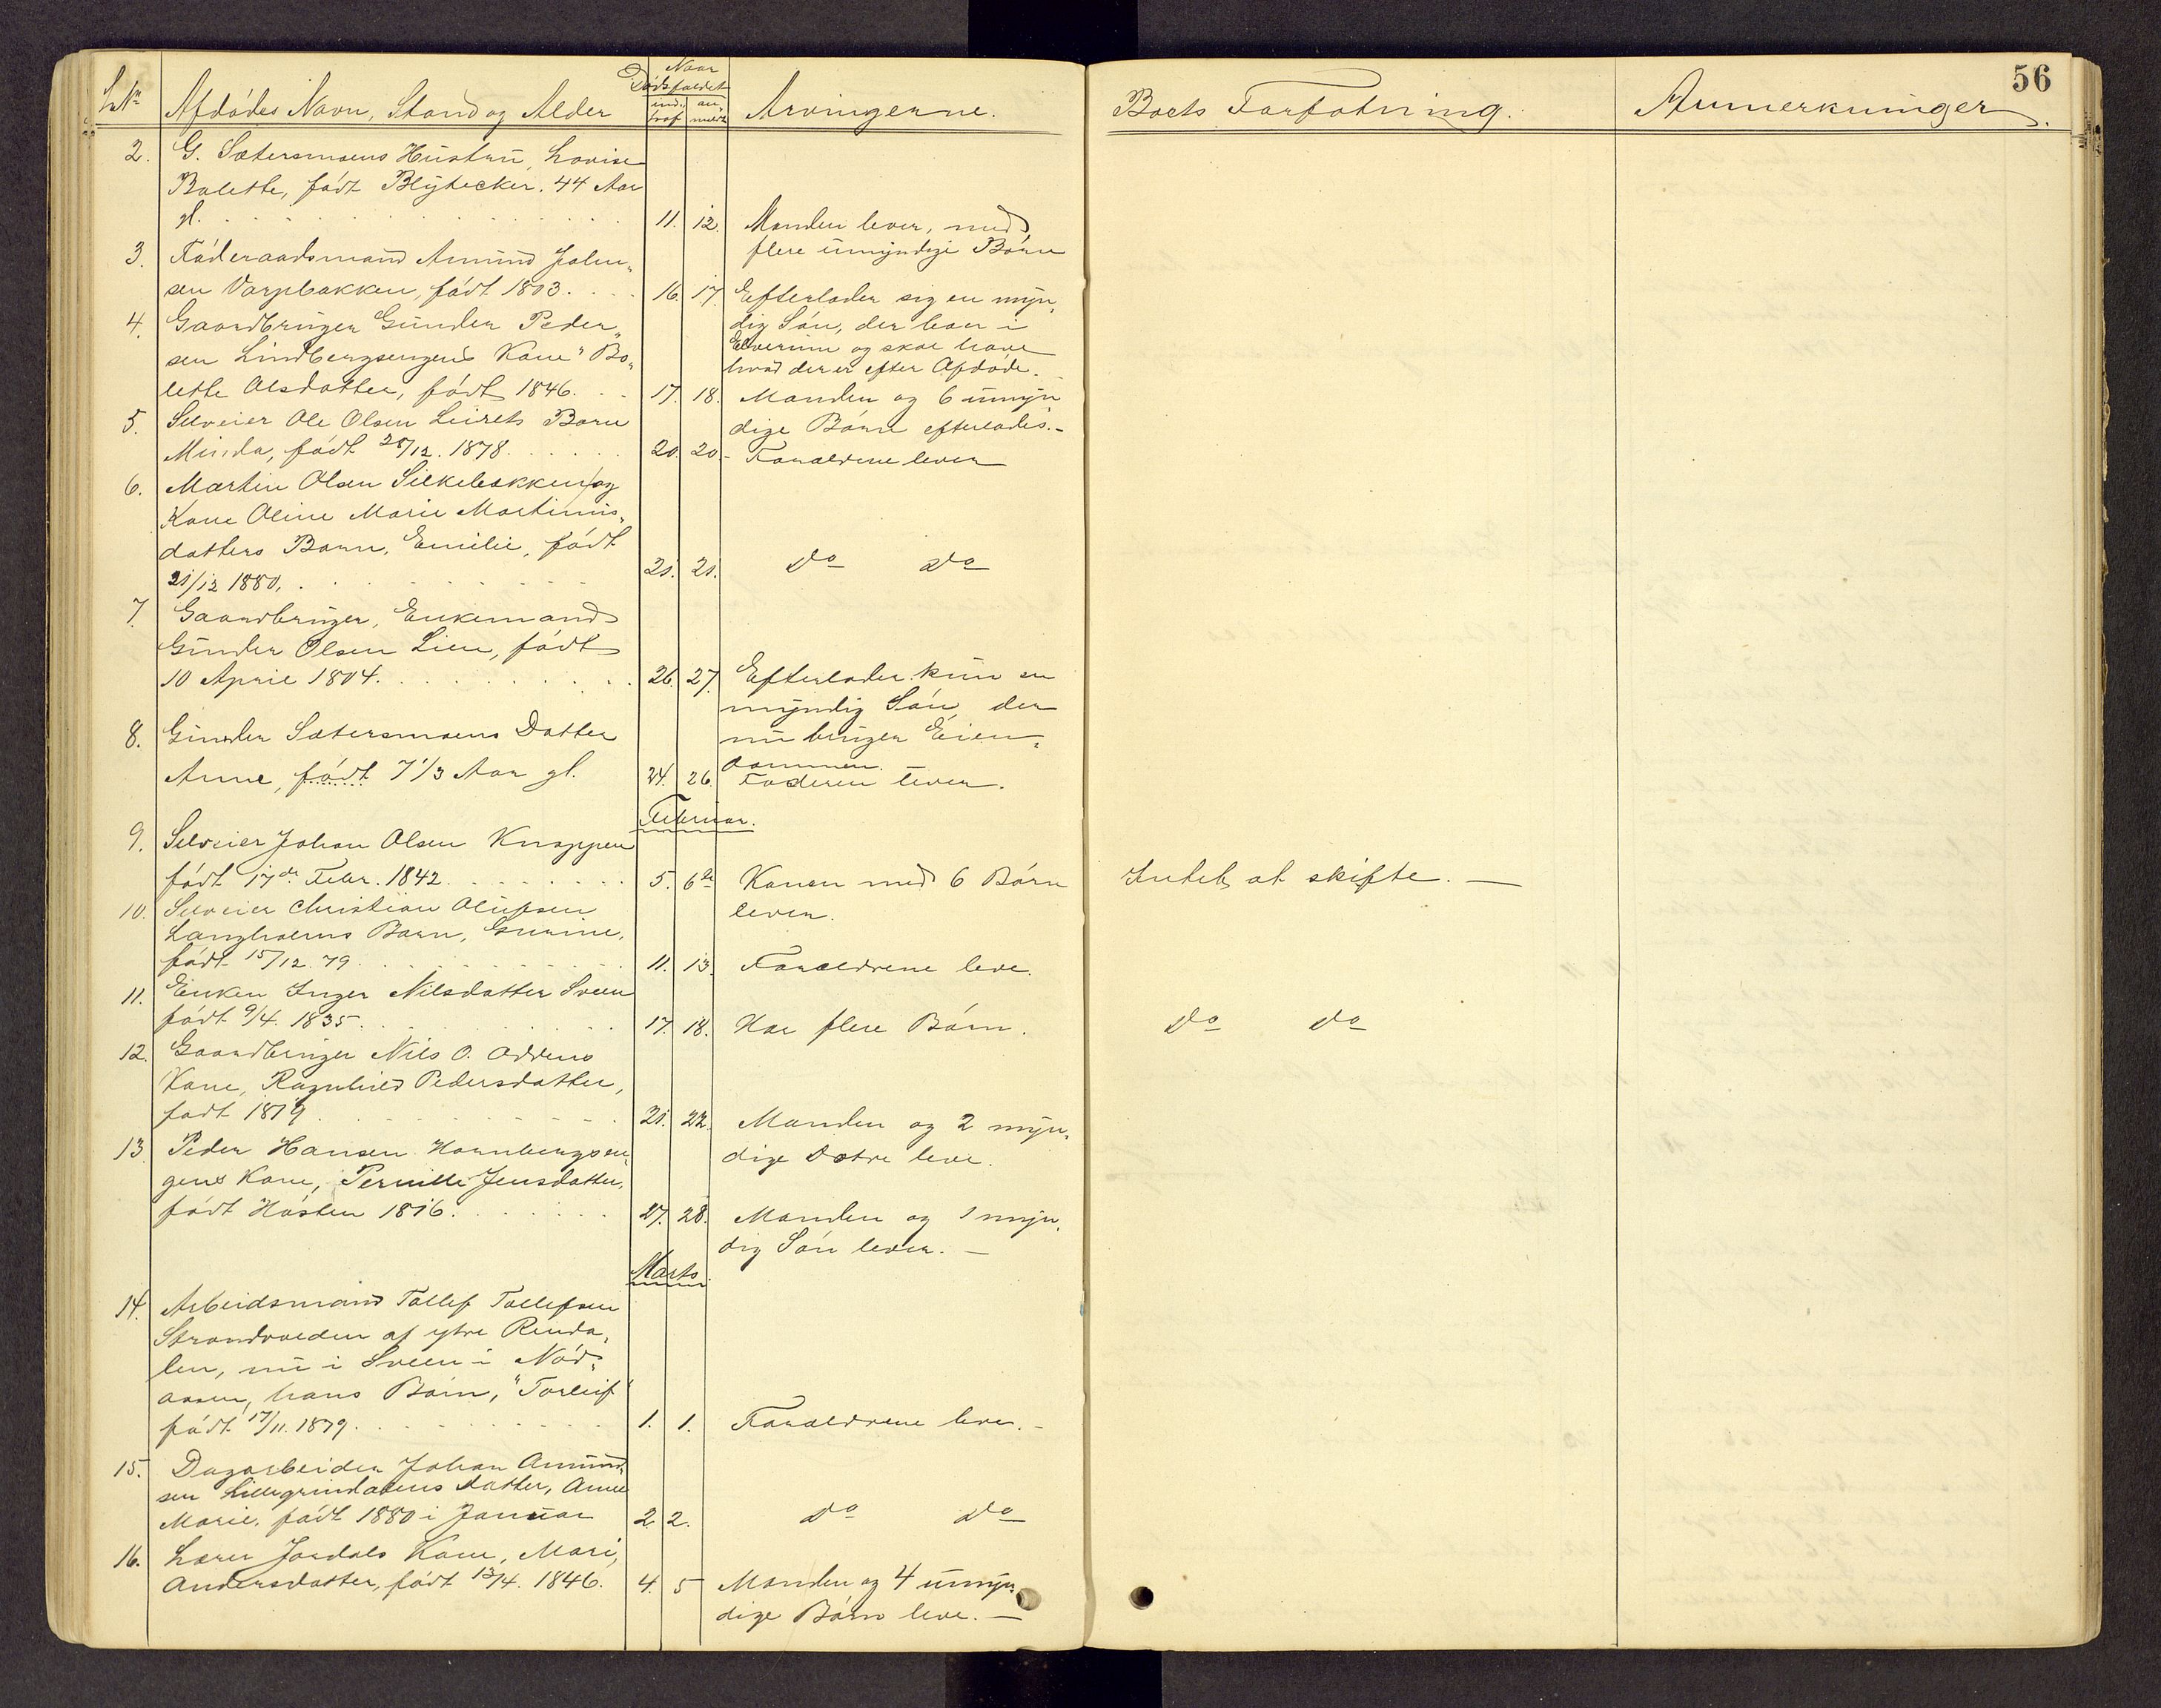 56
L. No Afdødes Navn, Stand og Alder Naar Dødsfaldet indtraf anmeldt Arvingerne. Boets Forfatning. Anmerkninger.
2. G. Sætersmoens Hustru, Lovise
Bolette, født Blytecker. 44 Aar
gl. 11. 12. Manden lever, med
flere umyndige Børn
3. Føderaadsmand Amund John-
sen Vorpbakken, født 1803. 16. 17. Efterlader sig en myn-
dig Søn, der boer i
Elverum og skal have
hvad der er efter Afdøde.
4. Gaardbruger Gunder Peder-
sen Lindbergsengens Kone "Bo-
lette Olsdatter, født 1846. 17. 18. Manden og 6 umyn
dige Børn efterlades.-
5. Selveier Ole Olsen Leirets Barn
Minda, født 28/12. 1878. 20. 20. Forældrene lever
6. Martin Olsen Silkebakken og
Kone Oline Marie Martinus-
datters Barn, Emilie, født
21/12 1880. 21. 21. do do
7. Gaardbruger, Enkemand
Gunder Olsen Lien, født
10 April 1804. 26. 27. Efterlader kun en
myndig Søn, der
nu bruger Eien-
dommen.
8. Gunder Sætersmoens Datter
Anne, født 7 1/3 Aar gl. 24. 26. Faderen lever.
Februar.
9. Selveier Johan Olsen Knappen
født 17de Febr. 1842. 5. 6te Konen med 6 Børn Intet at skifte. —
lever.
10. Selveier Christian Olufsen
Langholms Barn, Gurine,
født 15/12. 79. 11. 13. Forældrene leve.
11. Enken Inger Nilsdatter Sveen
født 9/4. 1835. 17. 18. Har flere Børn. do do
12. Gaardbruger Nils O. Oddens
Kone, Ragnhild Pedersdatter,
født 1819. 21. 22. Manden og 2 myn-
dige Døtre leve.
13. Peder Hansen Hornbergsen-
gens Kone, Pernille Jensdatter,
født Høsten 1816. 27. 28. Manden og 1 myn-
dig Søn lever. —
Marts.
14. Arbeidsmand Tollef Tollefsen
Strandvolden af ytre Renda-
len, nu i Sveen i Nød-
aasen, hans Barn, "Torleif"
født 17/11. 1879. 1. 1. Forældrene leve. -
15. Dagarbeider Johan Amund-
sen Lillegrindalens Datter, Anne
Marie, født 1880 i Januar 2. 2. do do
16. Lærer Jordals Kone, Mari,
Andersdatter, født 13/4. 1846. 4. 5 Manden og 4 umyn-
dige Børn leve. —